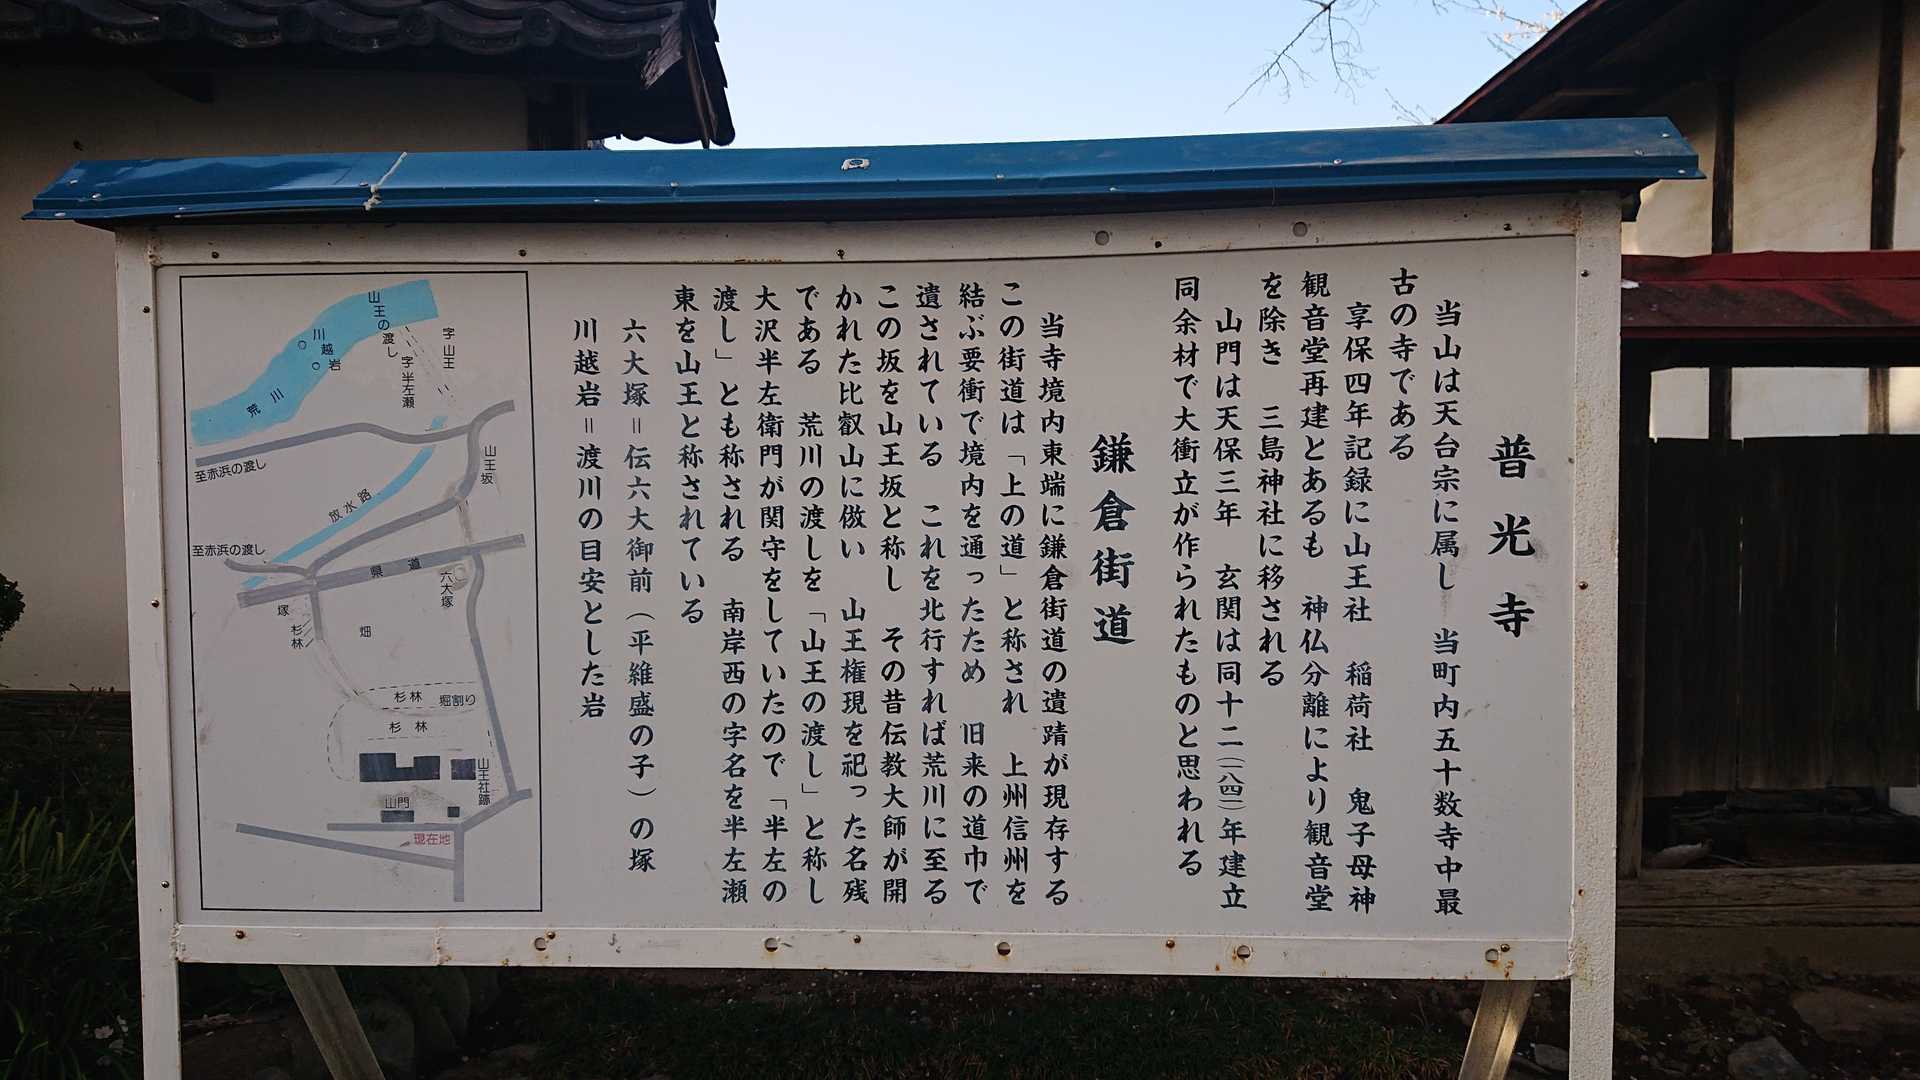 普光寺
当山は天台宗に属し　当町内五十数寺中最
古の寺である
享保四年記録に山王社　稲荷社　鬼子母神
観音堂再建とあるも　神仏分離により観音堂
を除き　三島神社に移される
山門は天保三年　玄関は同十二(一八四一)年建立
同余材で大衝立が作られたものと思われる
鎌倉街道
当寺境内東端に鎌倉街道の遺蹟が現存する
この街道は「上の道」と称され　上州信州を
結ぶ要衝で境内を通ったため　旧来の道巾で
遺されている　これを北行すれば荒川に至る
この坂を山王坂と称し　その昔伝教大師が開
かれた比叡山に倣い　山王権現を祀った名残
である　荒川の渡しを「山王の渡し」と称し
大沢半左衛門が関守をしていたので「半左の
渡し」とも称される　南岸西の字名を半左瀬
東を山王と称されている
六大塚＝伝六大御前（平維盛の子）の塚
川越岩＝渡川の目安とした岩
山王の渡し
川越岩
字山王
字半左瀬
荒川
至赤浜の渡し
山王坂
放水路
至赤浜の渡し
県道
六大塚
塚
杉林
畑
杉林
堀割り
杉林
山王社跡
山門
現在地